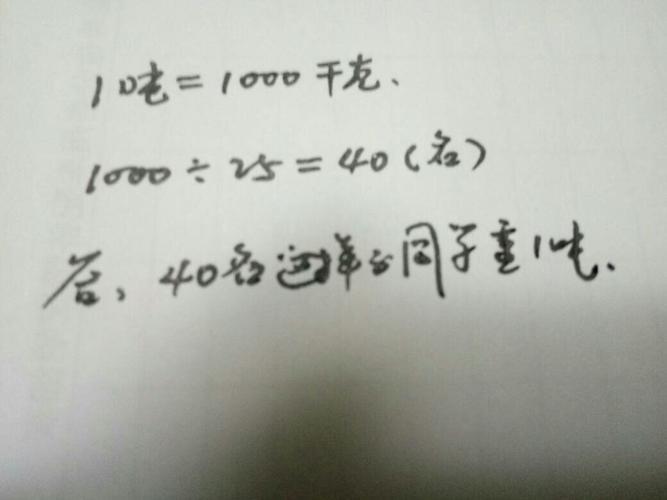 1吨=1000千克.
1000÷25=40(名)
答,40名这样的同学重1吨.